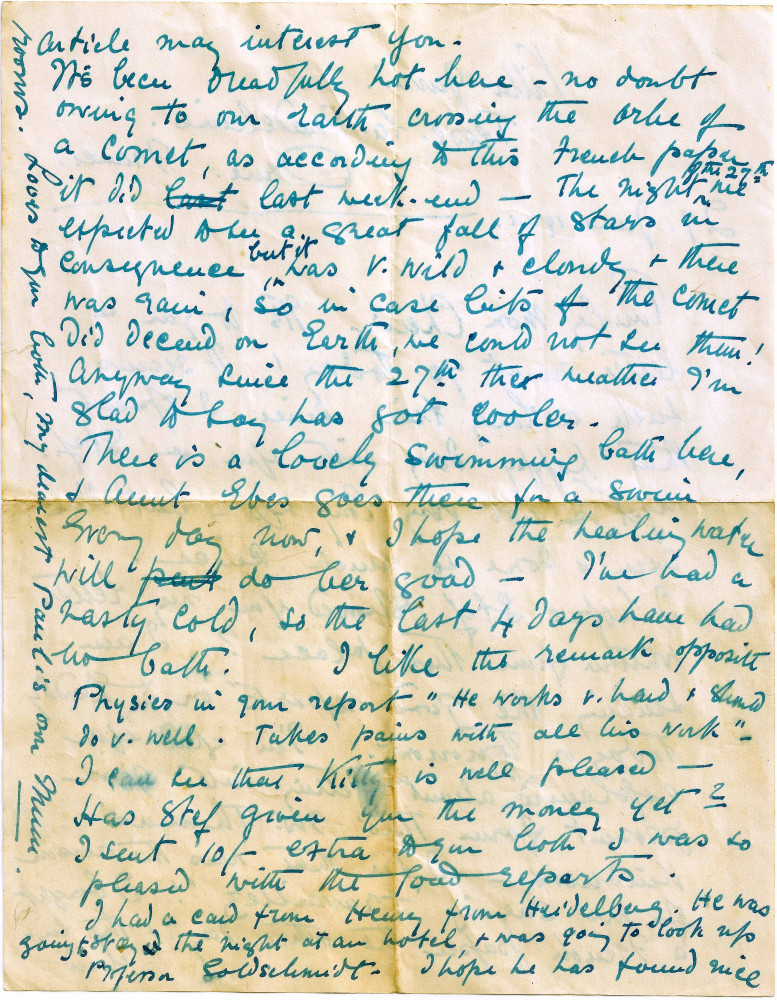 article may interest you.
It's been dreadfully hot here - no doubt
owing to our Earth crossing the orbe of
a Comet, as according to this French paper
it did last last week-end - The night of the 27th we
expected to see a great fall of stars in
consequence, but it was v. wild & cloudy & there
was rain, so in case bits of the Comet
did decend on Earth, we could not see them!
Anyway since the 27th the weather I'm
glad to say has got cooler.
There is a lovely swimming bath here,
& Aunt Ebes goes there for a swim
Every day now, & I hope the healing water
will do her good - I've had a
nasty cold, so the last 4 days have had
no bath. I like the remark opposite
Physics in your report "He works v. hard & should
do v. well. Takes pains with all his work" -
I can see that Kitty is well pleased -
Has Stef given you the money yet?
I sent 10/- extra to you both I was so
pleased with the good reports.
I had a card from Henry from Heidelberg. He was
going to stay the night at an hotel & was going to look up
Professor Goldschmidt - I hope he has found nice
rooms. Loves to you both, my dearest Pauli's own Mum.